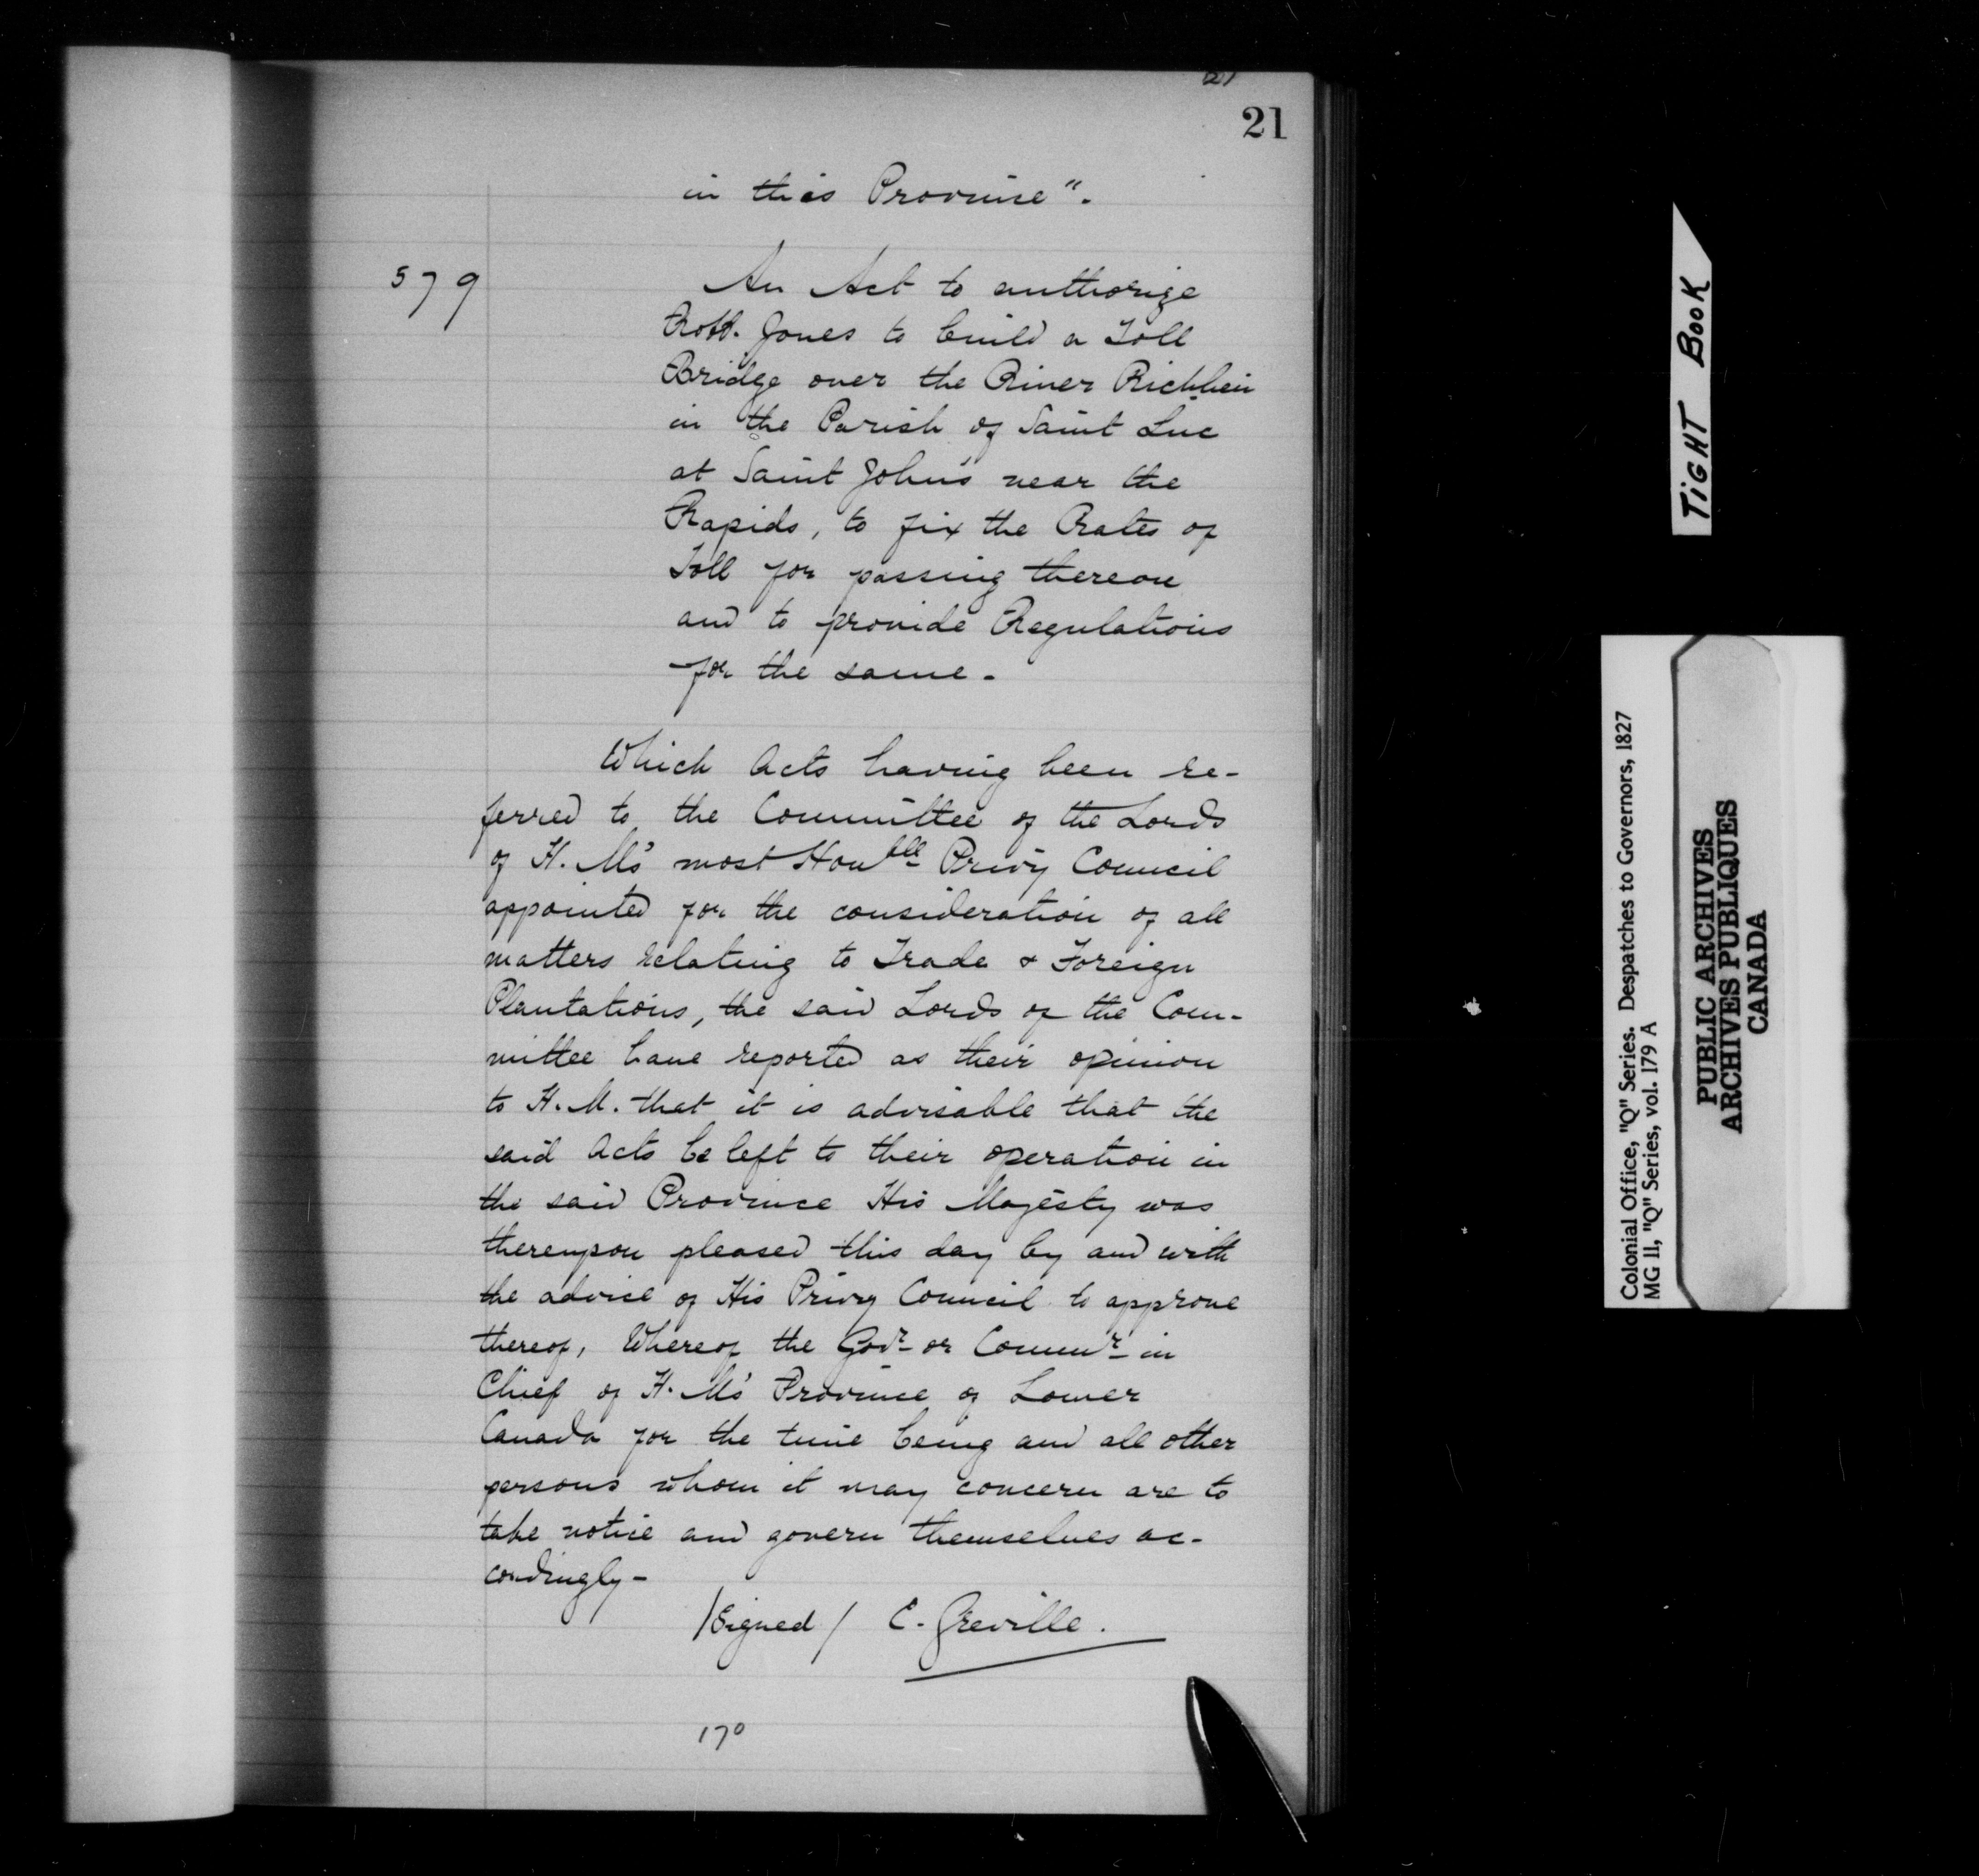 21
21
in this Province".
579
An Act to authorize
Robt. Jones to build a Toll
Bridge over the River Richlieu
in the Parish of Saint Luc
at Saint John's near the
Rapids, to fix the Rates of
Toll for passing thereon
and to provide Regulations
for the same.
Which Acts having been re-
ferred to the Committee of the Lords
of H. M's most Honble Privy Council
appointed for the consideration of all
matters relating to Trade & Foreign
Plantations, the said Lords of the Com-
mittee have reported as their opinion
to H. M. that it is advisable that the
said Acts be left to their operation in
the said Province His Majesty was
thereupon pleased this day by and with
the advice of His Privy Council to approve
thereof, Whereof the Govr or Commr in
Chief of H. M's Province of Lower
Canada for the time being and all other
persons whom it may concern are to
take notice and govern themselves ac-
cordingly-
/signed/ C. Greville.
170
TIGHT BOOK
Colonial Office, "Q" Series. Despatches to Governors, 1827
MG 11, "Q" Series, vol. 179 A
PUBLIC ARCHIVES
ARCHIVES PUBLIQUES
CANADA